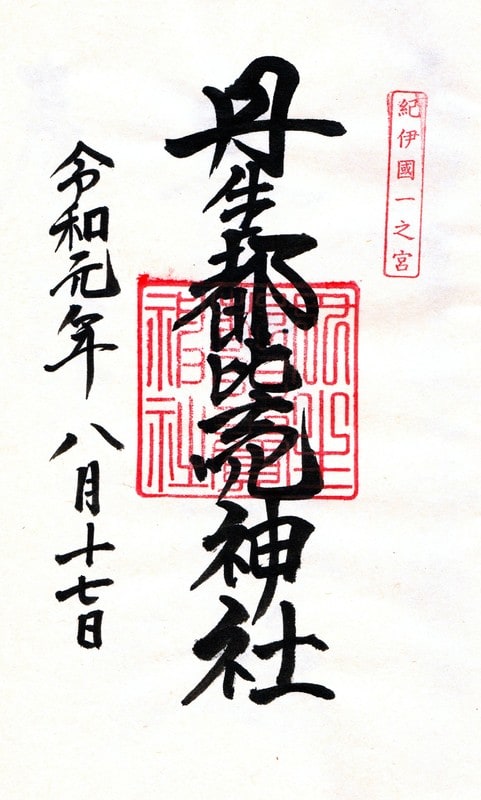 紀伊國一之宮
丹生都比売神社
丹生
神社
令和元年 八月十七日